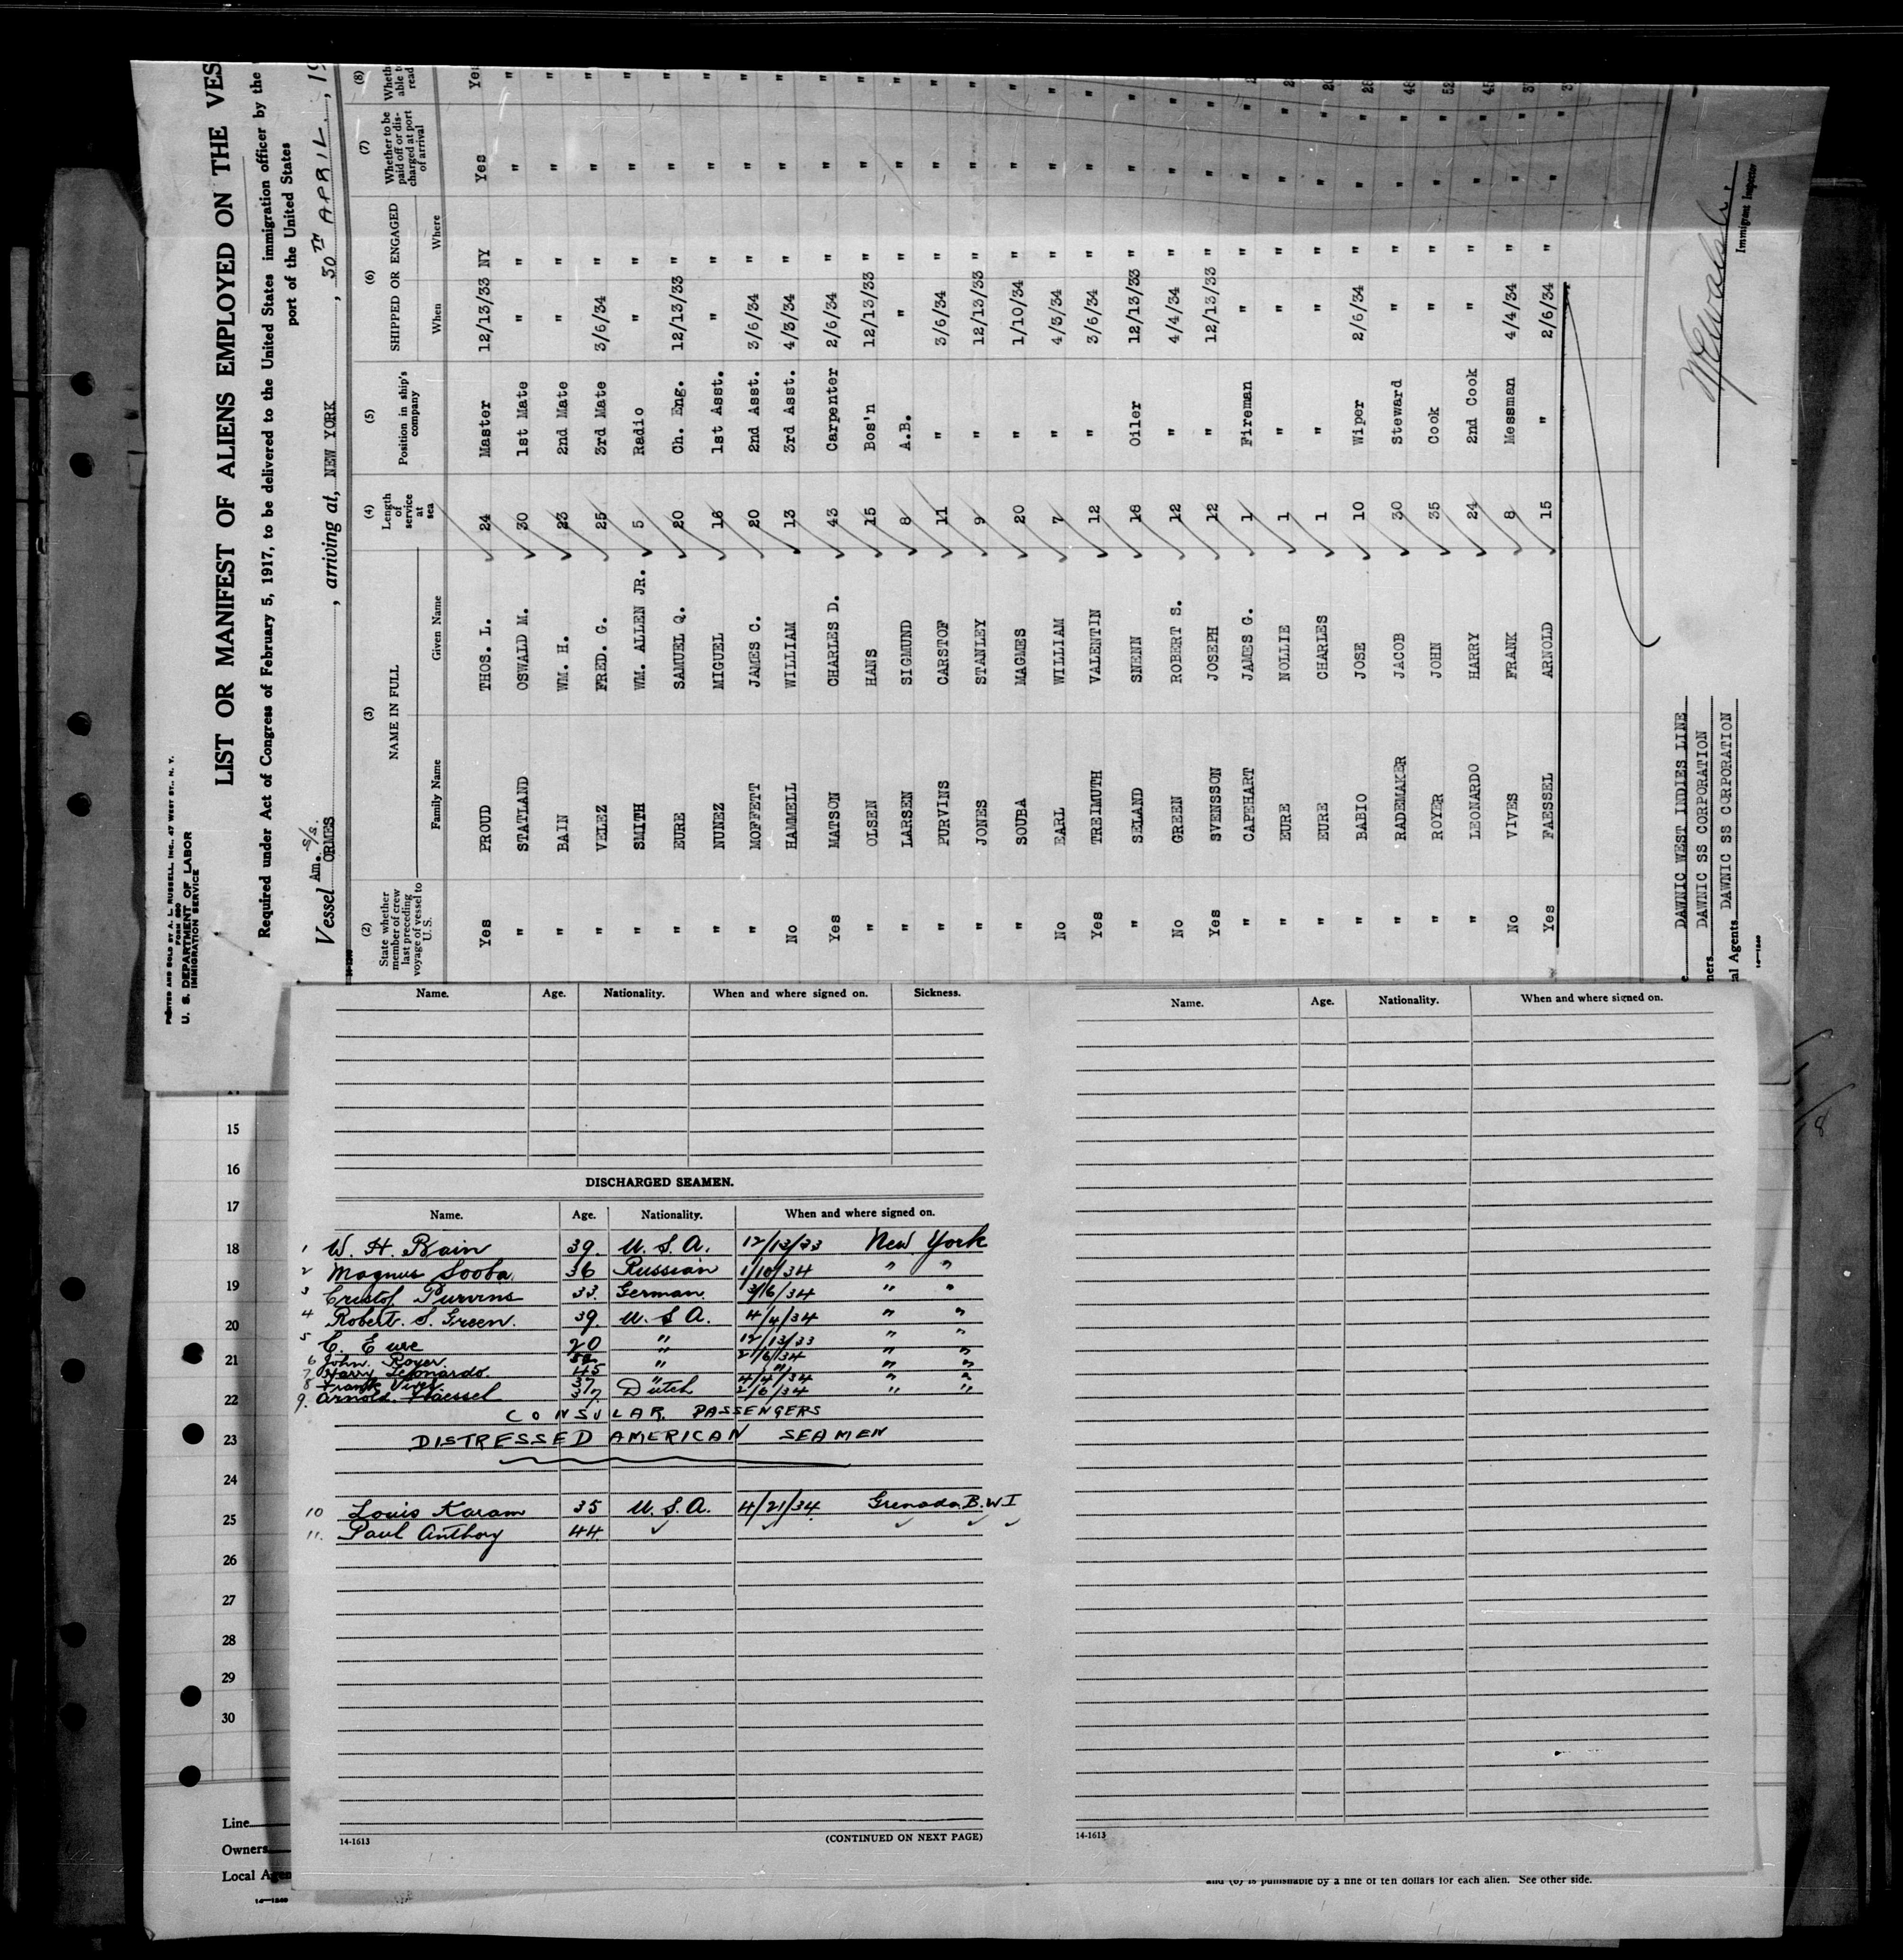 PRINTED AND SOLD BY A. L. RUSSELL, INC., 47 WEST ST., N. Y.
FORM 680
U. S. DEPARTMENT OF LABOR
IMMIGRATION SERVICE
LIST OR MANIFEST OF ALIENS EMPLOYED ON THE VES
Required under Act of Congress of February 5, 1917, to be delivered to the United States immigration officer by the
port of the United States
Vessel Am. S/S. ORMES, arriving at, NEW YORK, 30TH APRIL., 19
(2) (3) (4) (5) (6) (7) (8)
State whether member of crew last preceding voyage of vessel to U. S.
NAME IN FULL
Family Name Given Name
Length of service at sea
Position in ship's company
SHIPPED OR ENGAGED
When Where
Whether to be paid off or discharged at port of arrival
Yes PROUD THOS. L. 24 Master 12/13/33 NY Yes Yes
" STATLAND OSWALD M. 30 1st Mate " " " "
" BAIN WM. H. 23 2nd Mate " " " "
" VELEZ FRED. G. 25 3rd Mate 3/6/34 " " "
" SMITH WM. ALLEN JR. 5 Radio " " " "
" EURE SAMUEL Q. 20 Ch. Eng. 12/13/33 " " "
" NUNEZ MIGUEL 16 1st Asst. " " " "
" MOFFETT JAMES C. 20 2nd Asst. 3/6/34 " " "
No HAMMELL WILLIAM 13 3rd Asst. 4/3/34 " " "
Yes MATSON CHARLES D. 43 Carpenter 2/6/34 " " "
" OLSEN HANS 15 Bos'n 12/13/33 " " "
" LARSEN SIGMUND 8 A.B. " " " "
" PURVINS CARSTOF 11 " 3/6/34 " " "
" JONES STANLEY 9 " 12/13/33 " " "
" SOUBA MAGMES 20 " 1/10/34 " " "
No EARL WILLIAM 7 " 4/3/34 " " "
Yes TREIMUTH VALENTIN 12 " 3/6/34 " " "
" SELAND SNENN 18 Oiler 12/13/33 " " "
No GREEN ROBERT S. 12 " 4/4/34 " " "
Yes SVENSSON JOSEPH 12 " 12/13/33 " " "
" CAPEHART JAMES G. 1 Fireman " " " "
" EURE NOLLIE 1 " " " " "
" EURE CHARLES 1 " " " " "
" BABIO JOSE 10 Wiper 2/6/34 " " "
" RADEMAKER JACOB 30 Steward " " " "
" ROYER JOHN 35 Cook " " " "
" LEONARDO HARRY 24 2nd Cook " " " "
No VIVES FRANK 8 Messman 4/4/34 " " "
Yes FAESSEL ARNOLD 15 " 2/6/34 " " "
DAWNIC WEST INDIES LINE
DAWNIC SS CORPORATION
al Agents DAWNIC SS CORPORATION
Immigrant Inspector
Name. Age. Nationality. When and where signed on. Sickness.
DISCHARGED SEAMEN.
Name. Age. Nationality. When and where signed on.
1 W. H. Bain 39. U. S. A. 12/13/33 New York
2 Magnus Sooba 36 Russian 1/10/34 " "
3 Cristof Purvins 33. German 3/6/34 " "
4 Robert. S. Green. 39. U. S. A. 4/4/34 " "
5 C. Eure 20 " 12/13/33 " "
6 John. Royer 52 " 2/6/34 " "
7 Harry Leonardo. 45 " " " "
8 Frank Vives 37 " 4/4/34 " "
9. Arnold. Faessel 37. Dutch 2/6/34 " "
CONSULAR PASSENGERS
DISTRESSED AMERICAN SEAMEN
10 Louis Karam 35 U. S. A. 4/21/34 Grenada B. W I
11. Paul Anthony 44
14-1613 (CONTINUED ON NEXT PAGE)
Name. Age. Nationality. When and where signed on.
14-1613
15
16
17
18
19
20
21
22
23
24
25
26
27
28
29
30
Line
Owners
Local Agen
14-1240
and (6) is punishable by a fine of ten dollars for each alien. See other side.